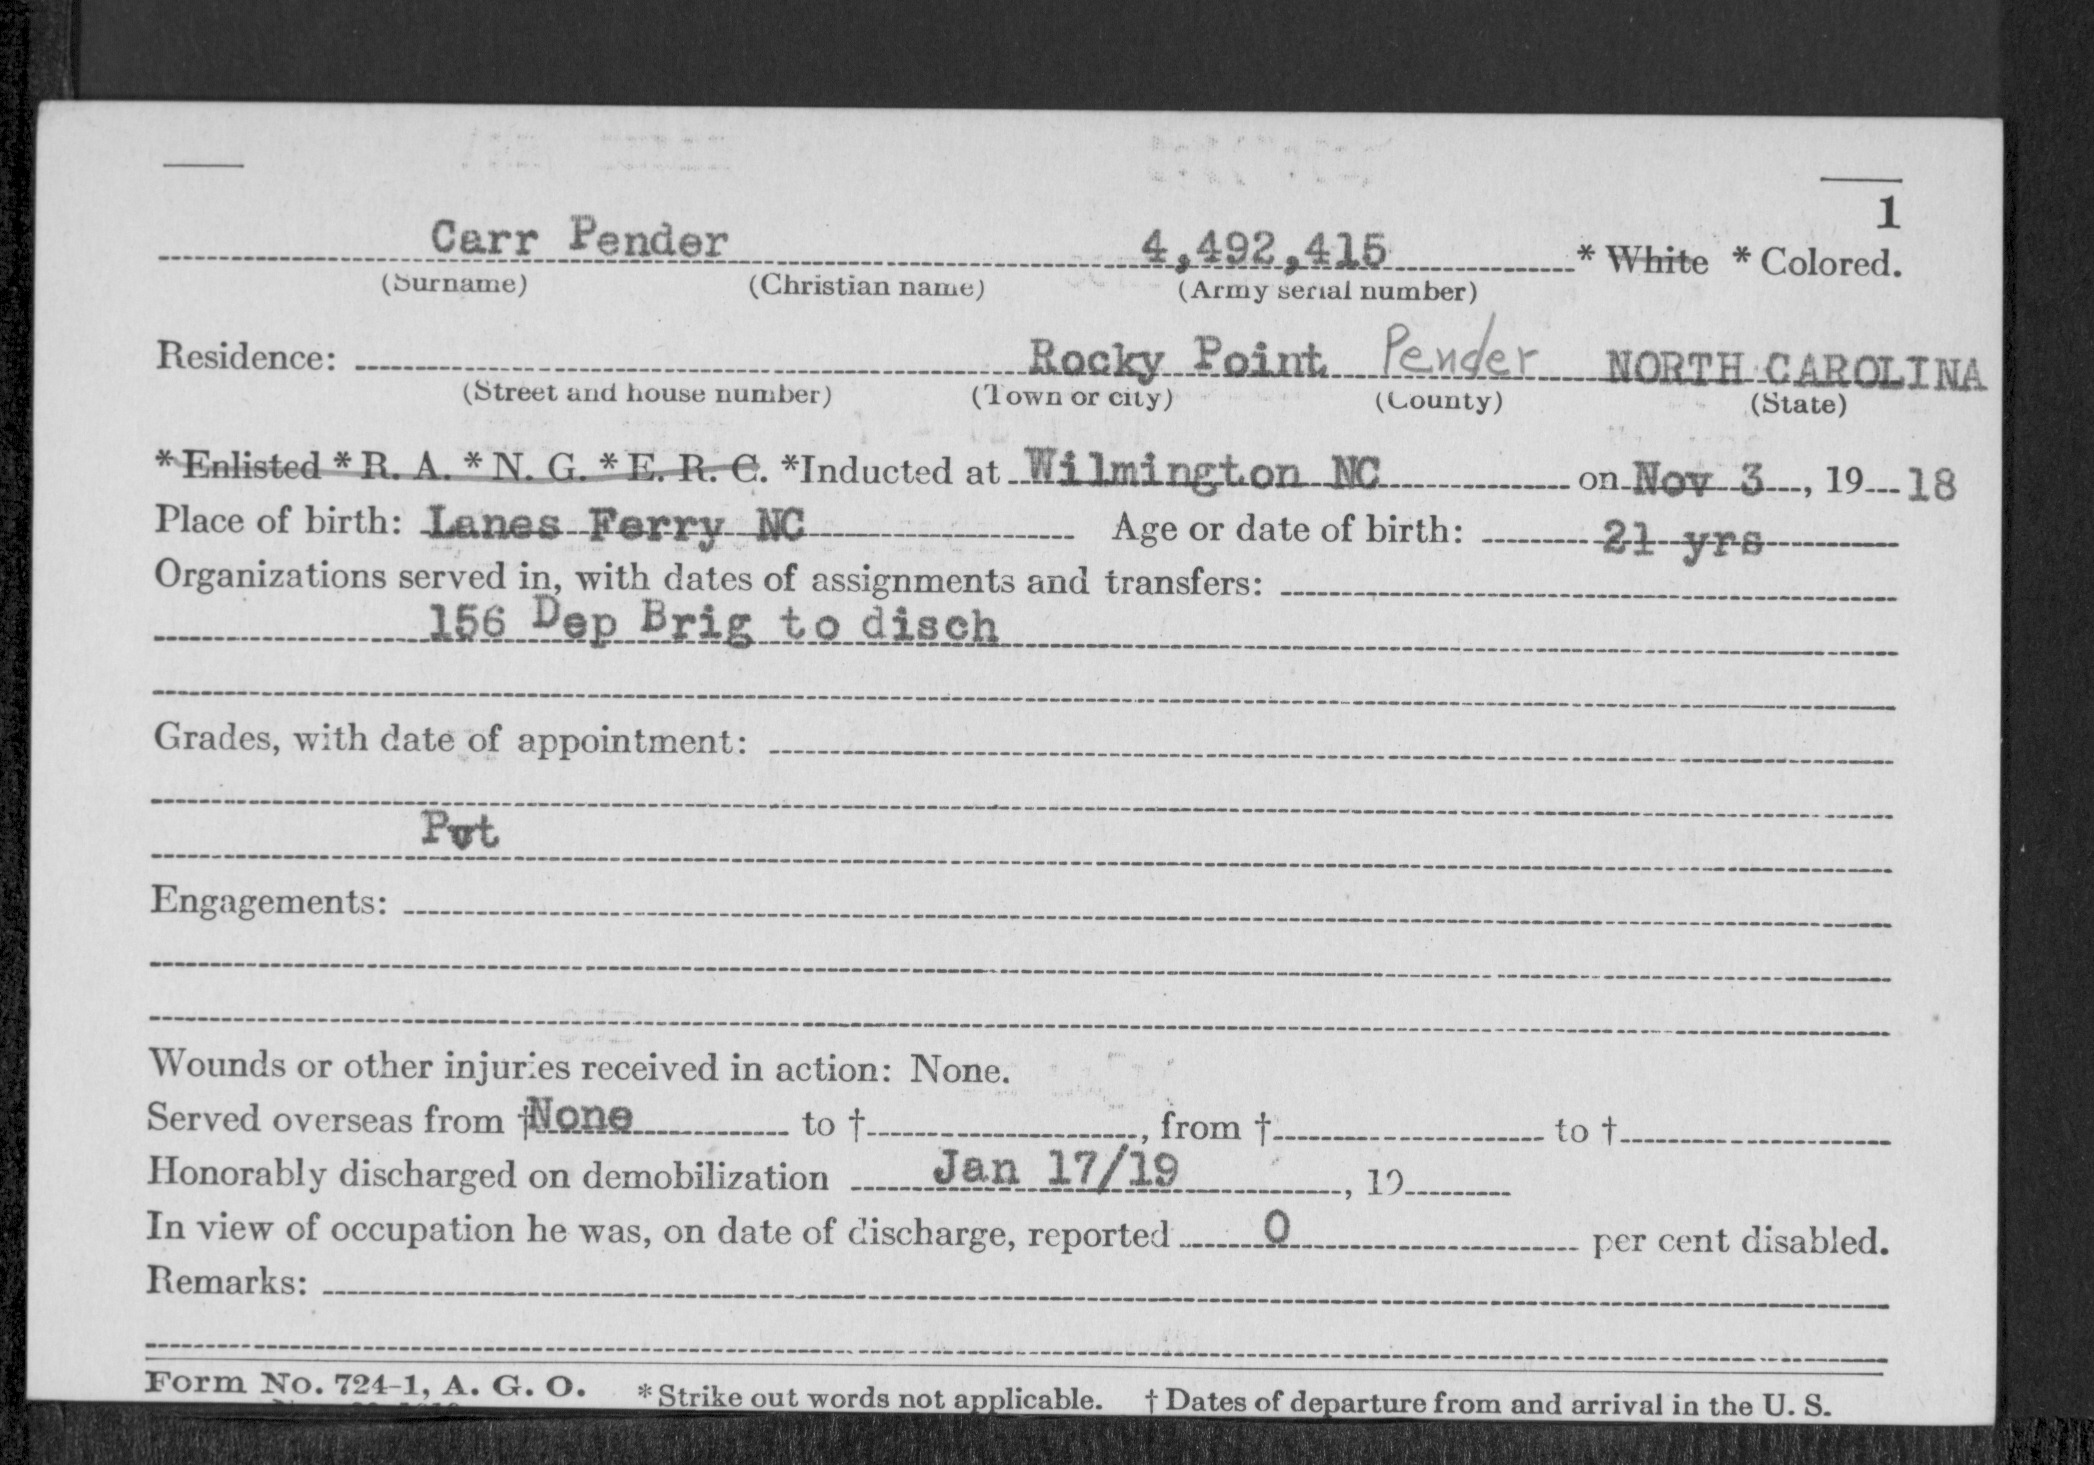 1
Carr Pender 4,492,415 * White * Colored.
(Surname) (Christian name) (Army serial number)
Residence: Rocky Point Pender NORTH CAROLINA
(Street and house number) (Town or city) (County) (State)
* Enlisted * R. A. * N. G. * E. R. C. *Inducted at Wilmington NC on Nov 3, 19 18
Place of birth: Lanes Ferry NC Age or date of birth: 21 yrs
Organizations served in, with dates of assignments and transfers:
156 Dep Brig to disch
Grades, with date of appointment:
Pvt
Engagements:
Wounds or other injuries received in action: None.
Served overseas from † None to †, from † to †
Honorably discharged on demobilization Jan 17/19, 19
In view of occupation he was, on date of discharge, reported 0 per cent disabled.
Remarks:
Form No. 724-1, A. G. O. * Strike out words not applicable. † Dates of departure from and arrival in the U. S.